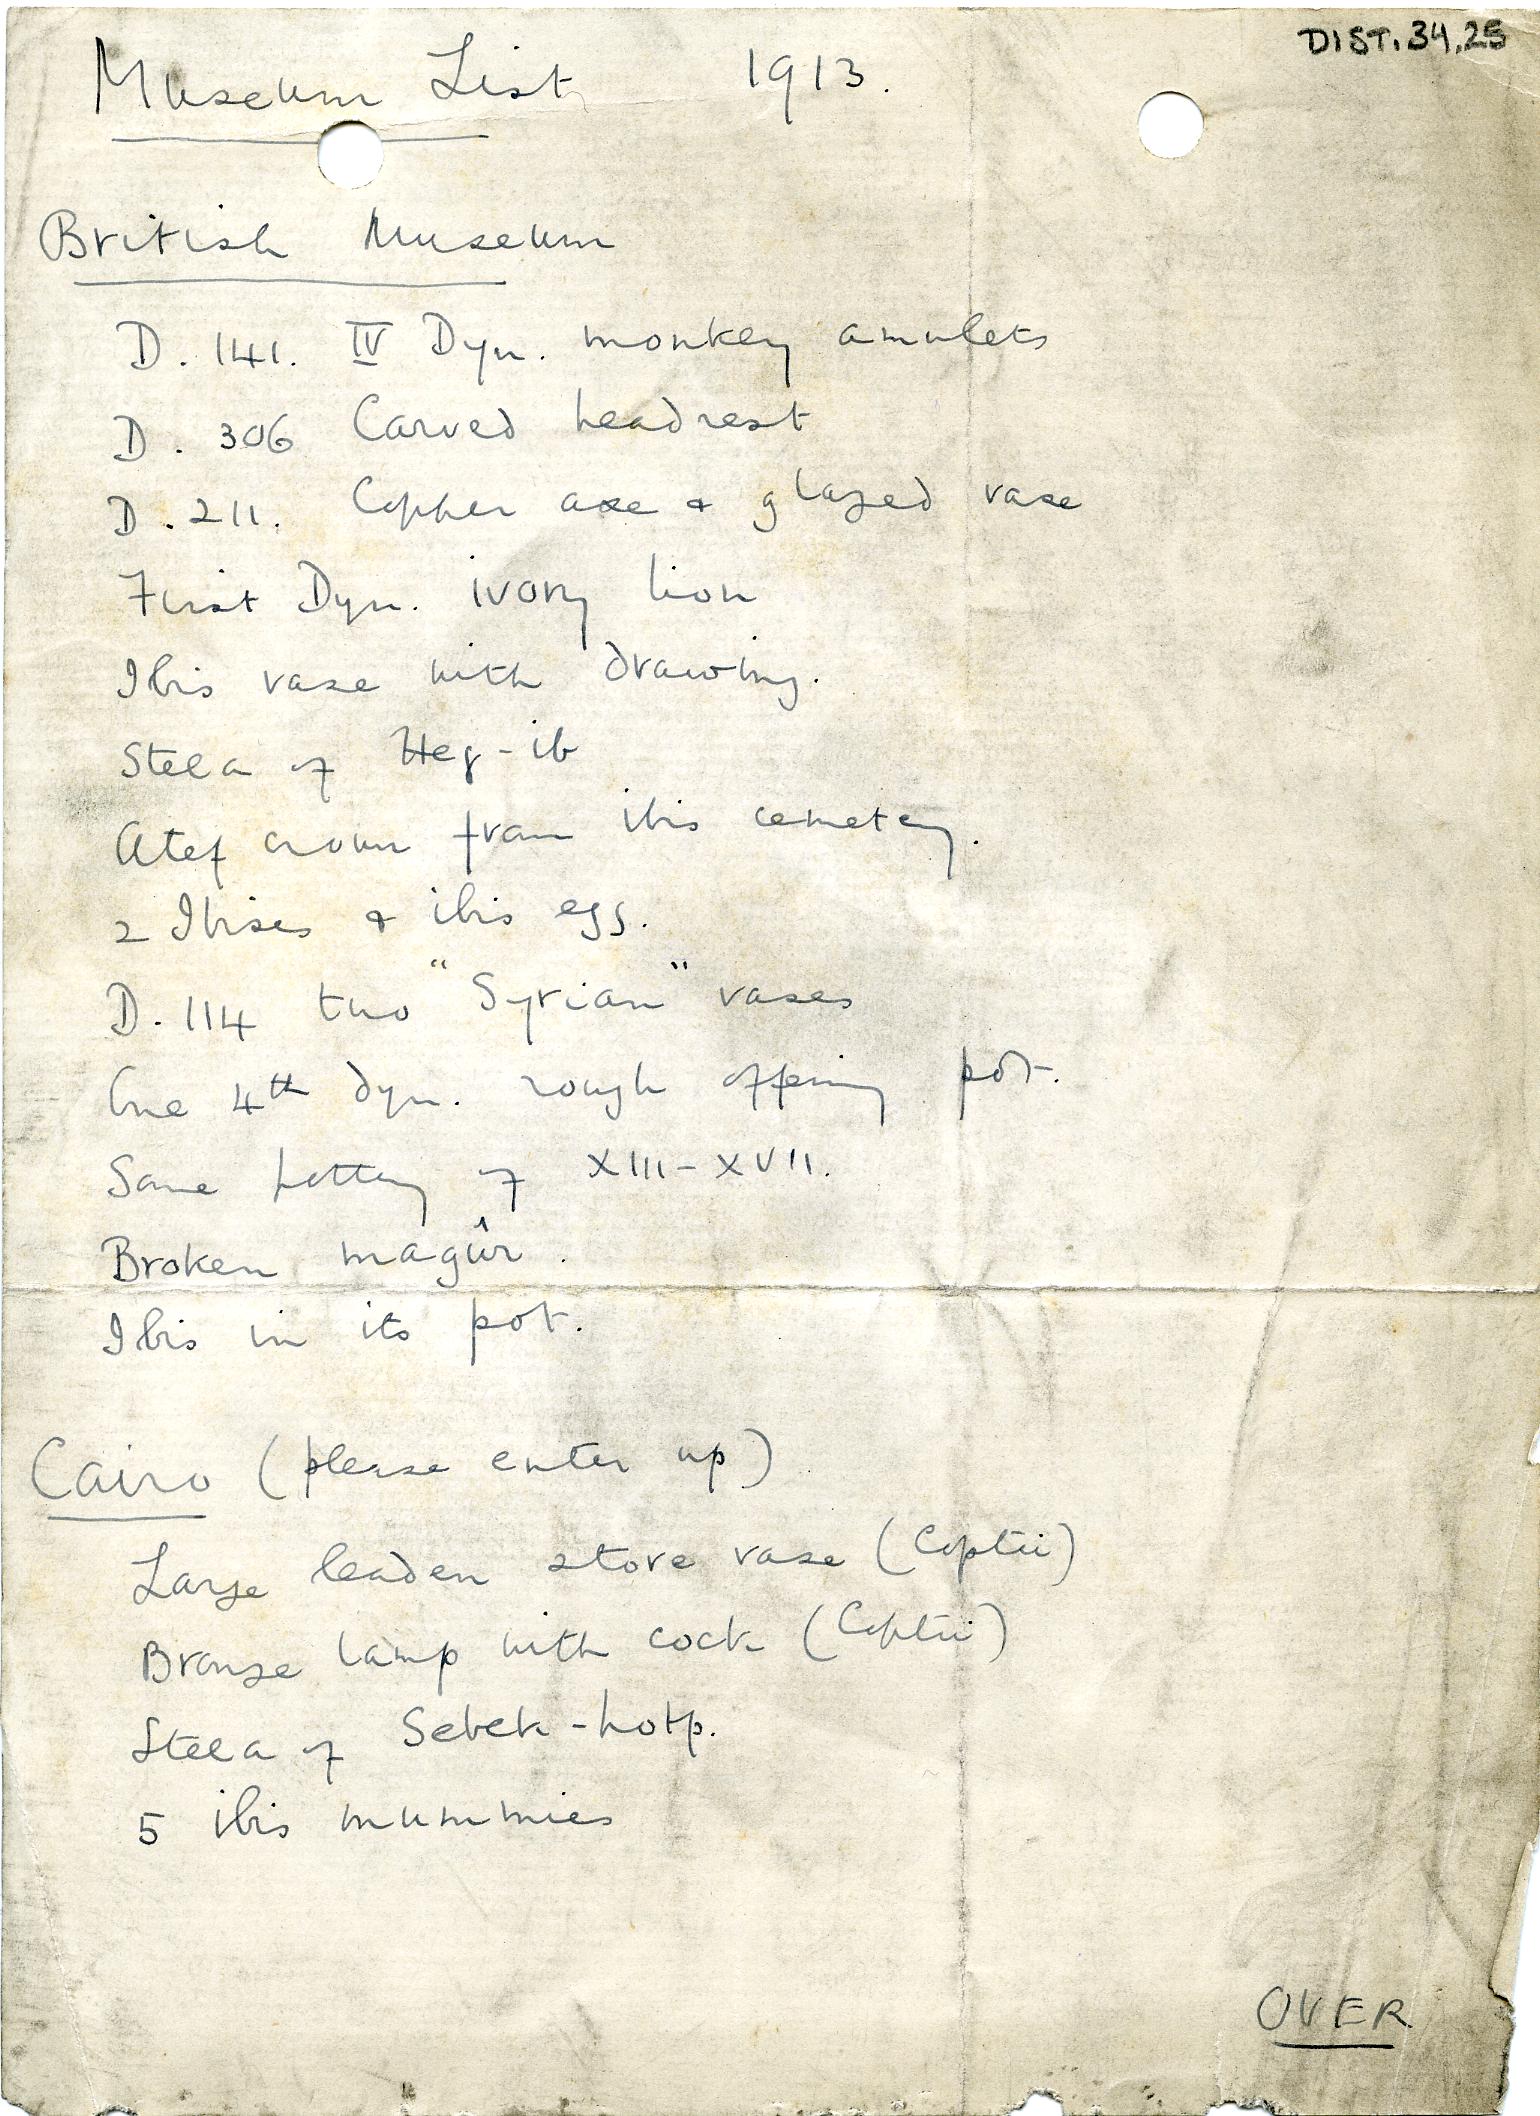 DIST. 34.25
Museum List 1913.
British Museum
D. 141. IV Dyn. monkey amulets
D. 306 Carved headrest
D. 211. Copper axe & glazed vase
First Dyn. ivory lion
Ibis vase with drawing.
Stela of Heq-ib
Atef crown from ibis cemetery.
2 Ibises & ibis egg.
D. 114 two "Syrian" vases
One 4th dyn. rough offering pot.
Some pottery of XIII-XVII.
Broken magûr.
Ibis in its pot.
Cairo (please enter up)
Large leaden store vase (Coptic)
Bronze lamp with cock (Coptic)
Stela of Sebek-hotp.
5 ibis mummies
OVER